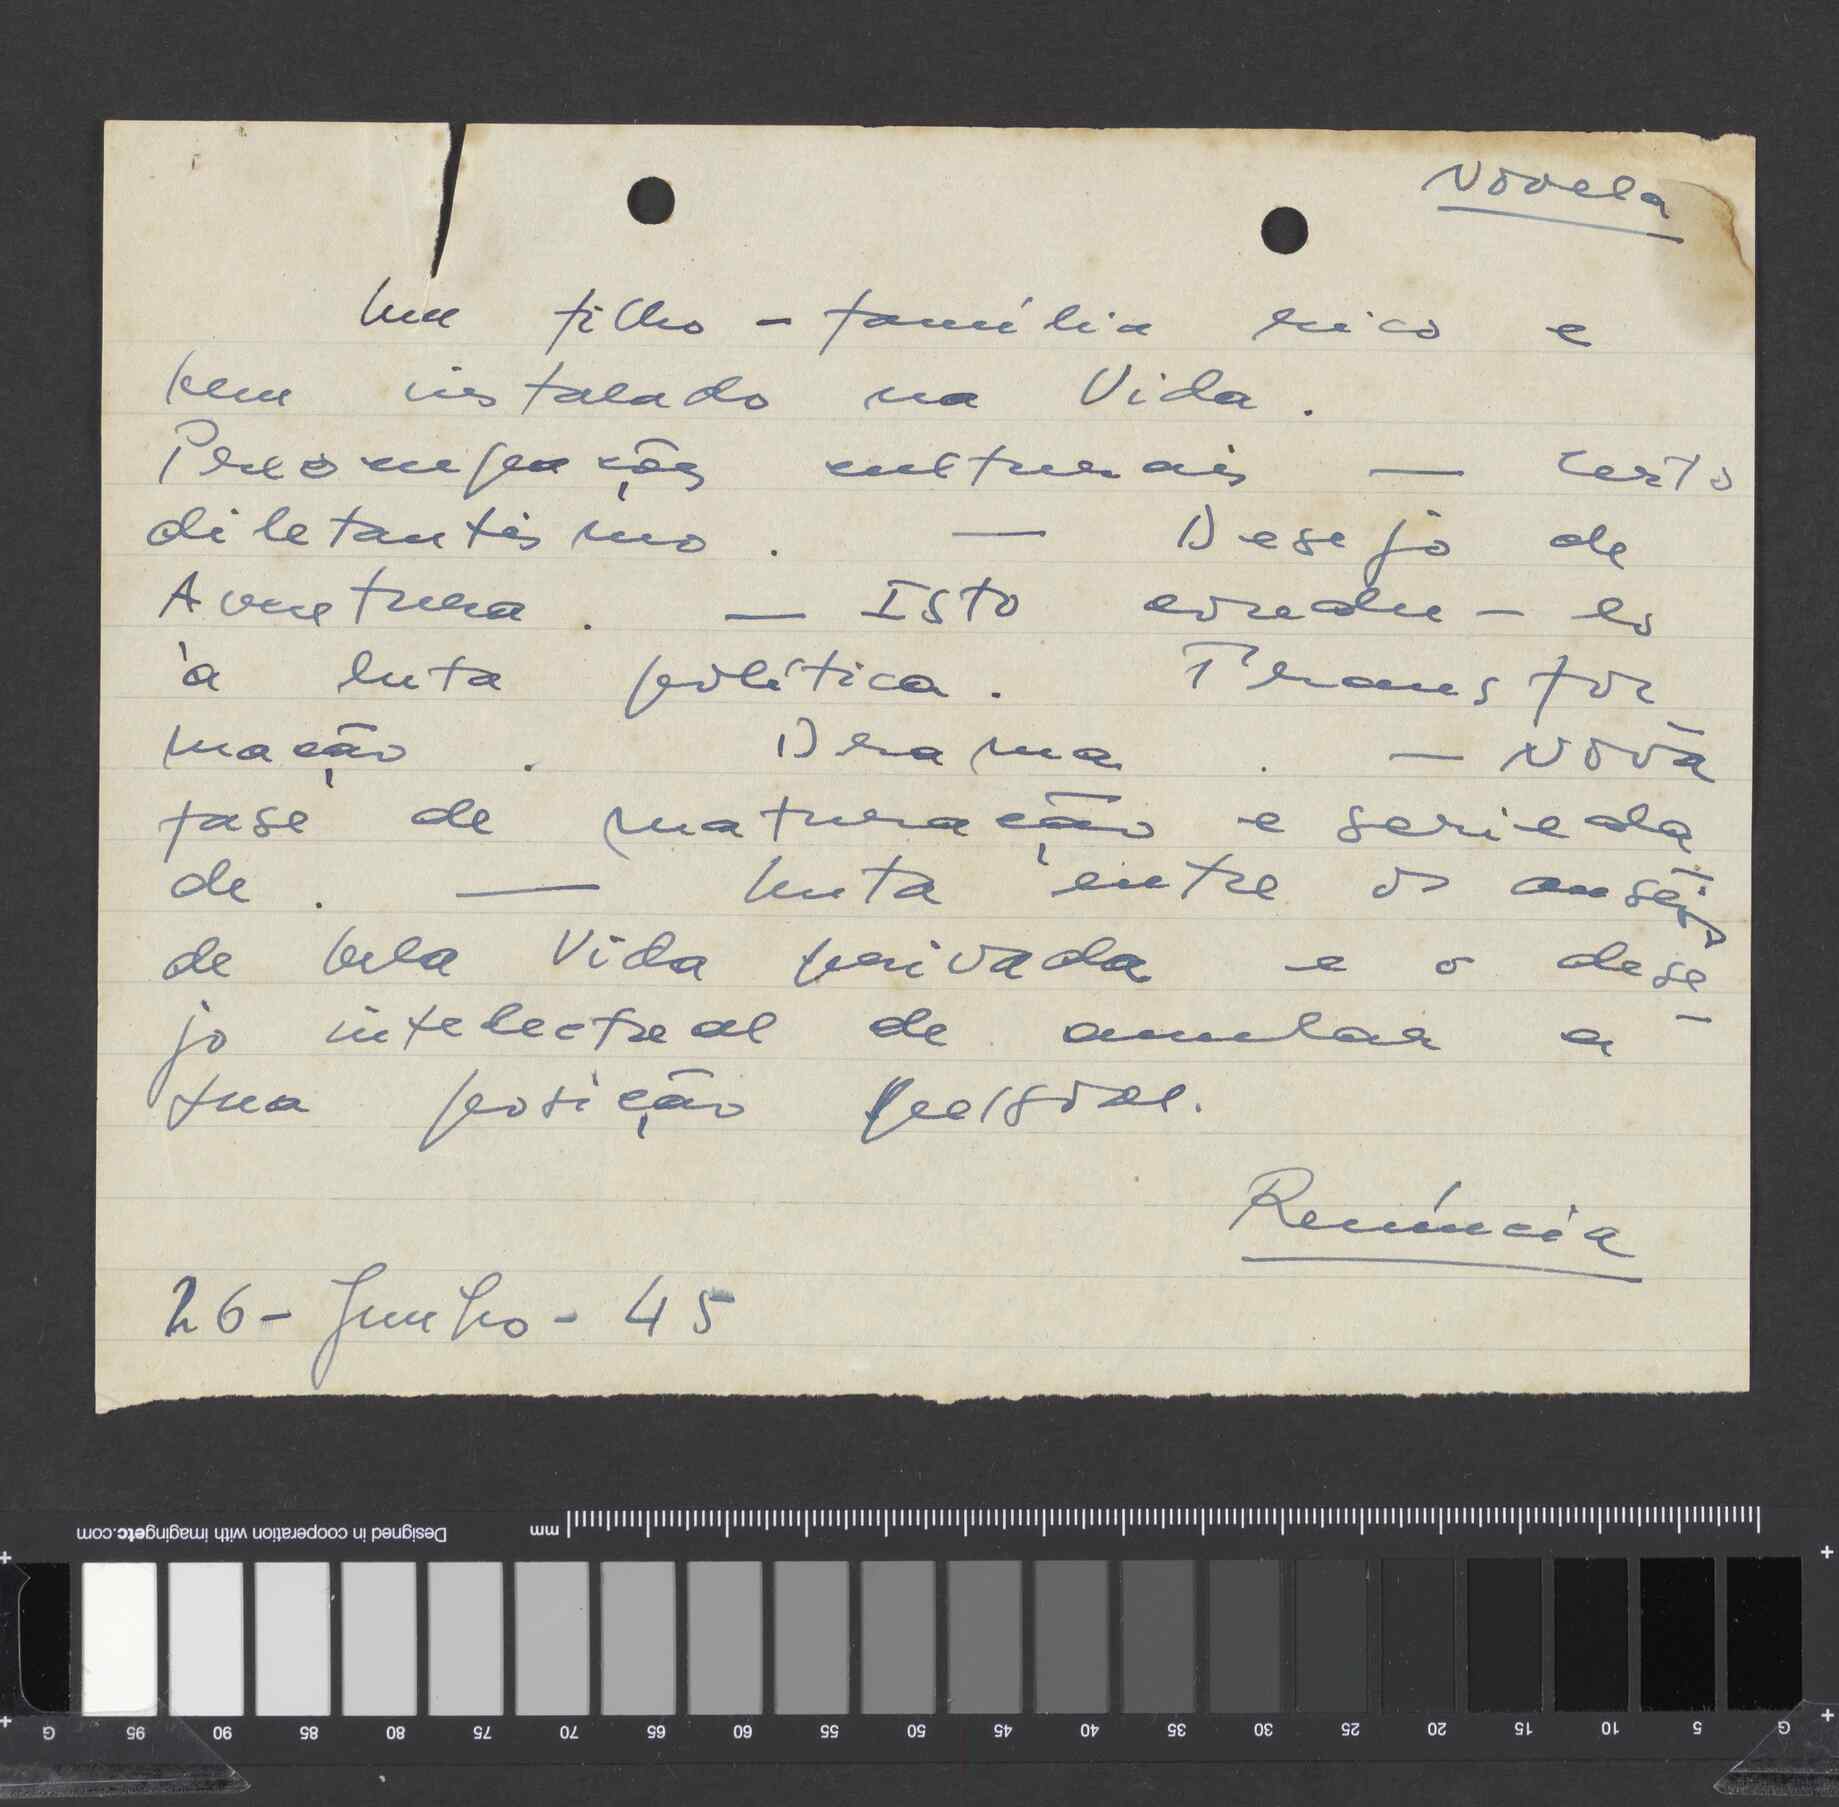 Novela
Um filho-família rico e
bem instalado na Vida.
Preocupações culturais — certo
diletantismo. — Desejo de
Aventura. — Isto conduz-lo
à luta política. Transfor
mação. Drama. — Nova
fase de maturação e serieda
de. — Luta entre os anseios
de bela Vida privada e o dese-
jo intelectual de anular a
sua posição pessoal.
Renúncia
26-Junho-45
Designed in cooperation with imagingetc.com
mm
G 95 90 85 80 75 70 65 60 55 50 45 40 35 30 25 20 15 10 5 G